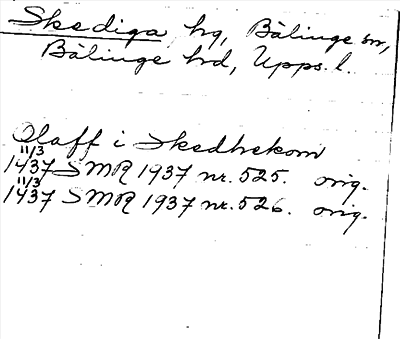 Skediga hg, Bälinge sn,
Bälinge hd, Upps. l.
Olaff i Skedhekom
11/3
1437 SMR 1937 nr. 525. orig.
11/3
1437 SMR 1937 nr. 526. orig.